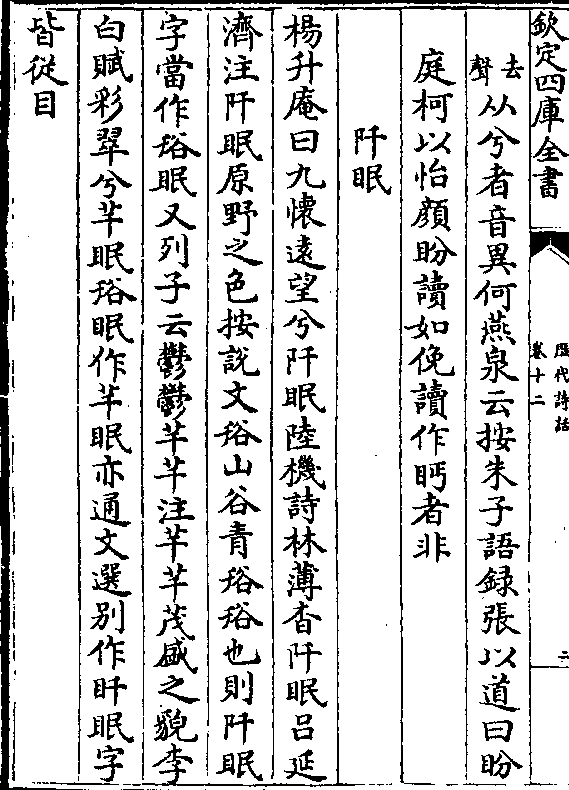 欽定四庫全書
歷代詩話
卷十二
二
去聲从兮者音異何燕泉云按朱子語録張以道曰盼
庭柯以怡顔盼讀如俛讀作眄者非
阡眠
楊升庵曰九懷遠望兮阡眠陸機詩林薄杳阡眠吕延
濟注阡眠原野之色按說文䜝山谷青䜝䜝也則阡眠
字當作䜝眠又列子云鬱鬱芊芊注芊芊茂盛之貌李
白賦彩翠兮芊眠䜝眠作芊眠亦通文選别作盰眠字
皆從目